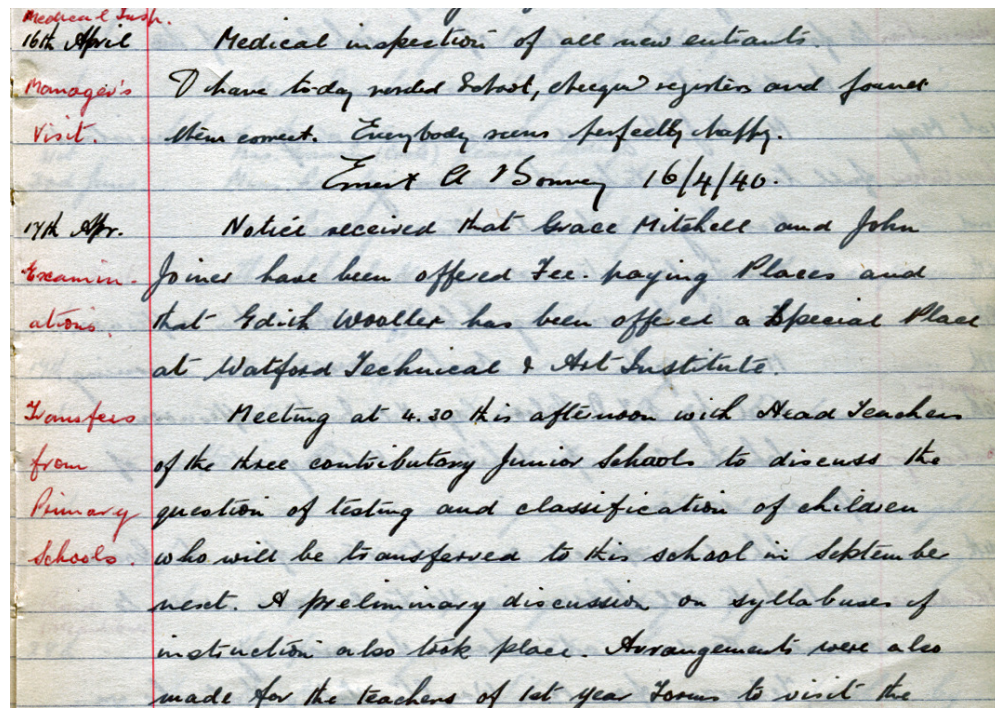 Medical Insp.
16th April Medical inspection of all new entrants.
Manager's I have to-day visited School, checked registers and found
Visit. them correct. Everybody seems perfectly happy.
Ernest A Bonney 16/4/40.
17th Apr. Notice received that Grace Mitchell and John
Examin- Joiner have been offered Fee-paying Places and
ations. that Edith Wooller has been offered a Special Place
at Watford Technical & Art Institute
Transfers Meeting at 4.30 this afternoon with Head Teachers
from of the three contributary Junior Schools to discuss the
Primary question of testing and classification of children
Schools. who will be transferred to this school in September
next. A preliminary discussion on syllabuses of
instruction also took place. Arrangements were also
made for the teachers of 1st year Forms to visit the